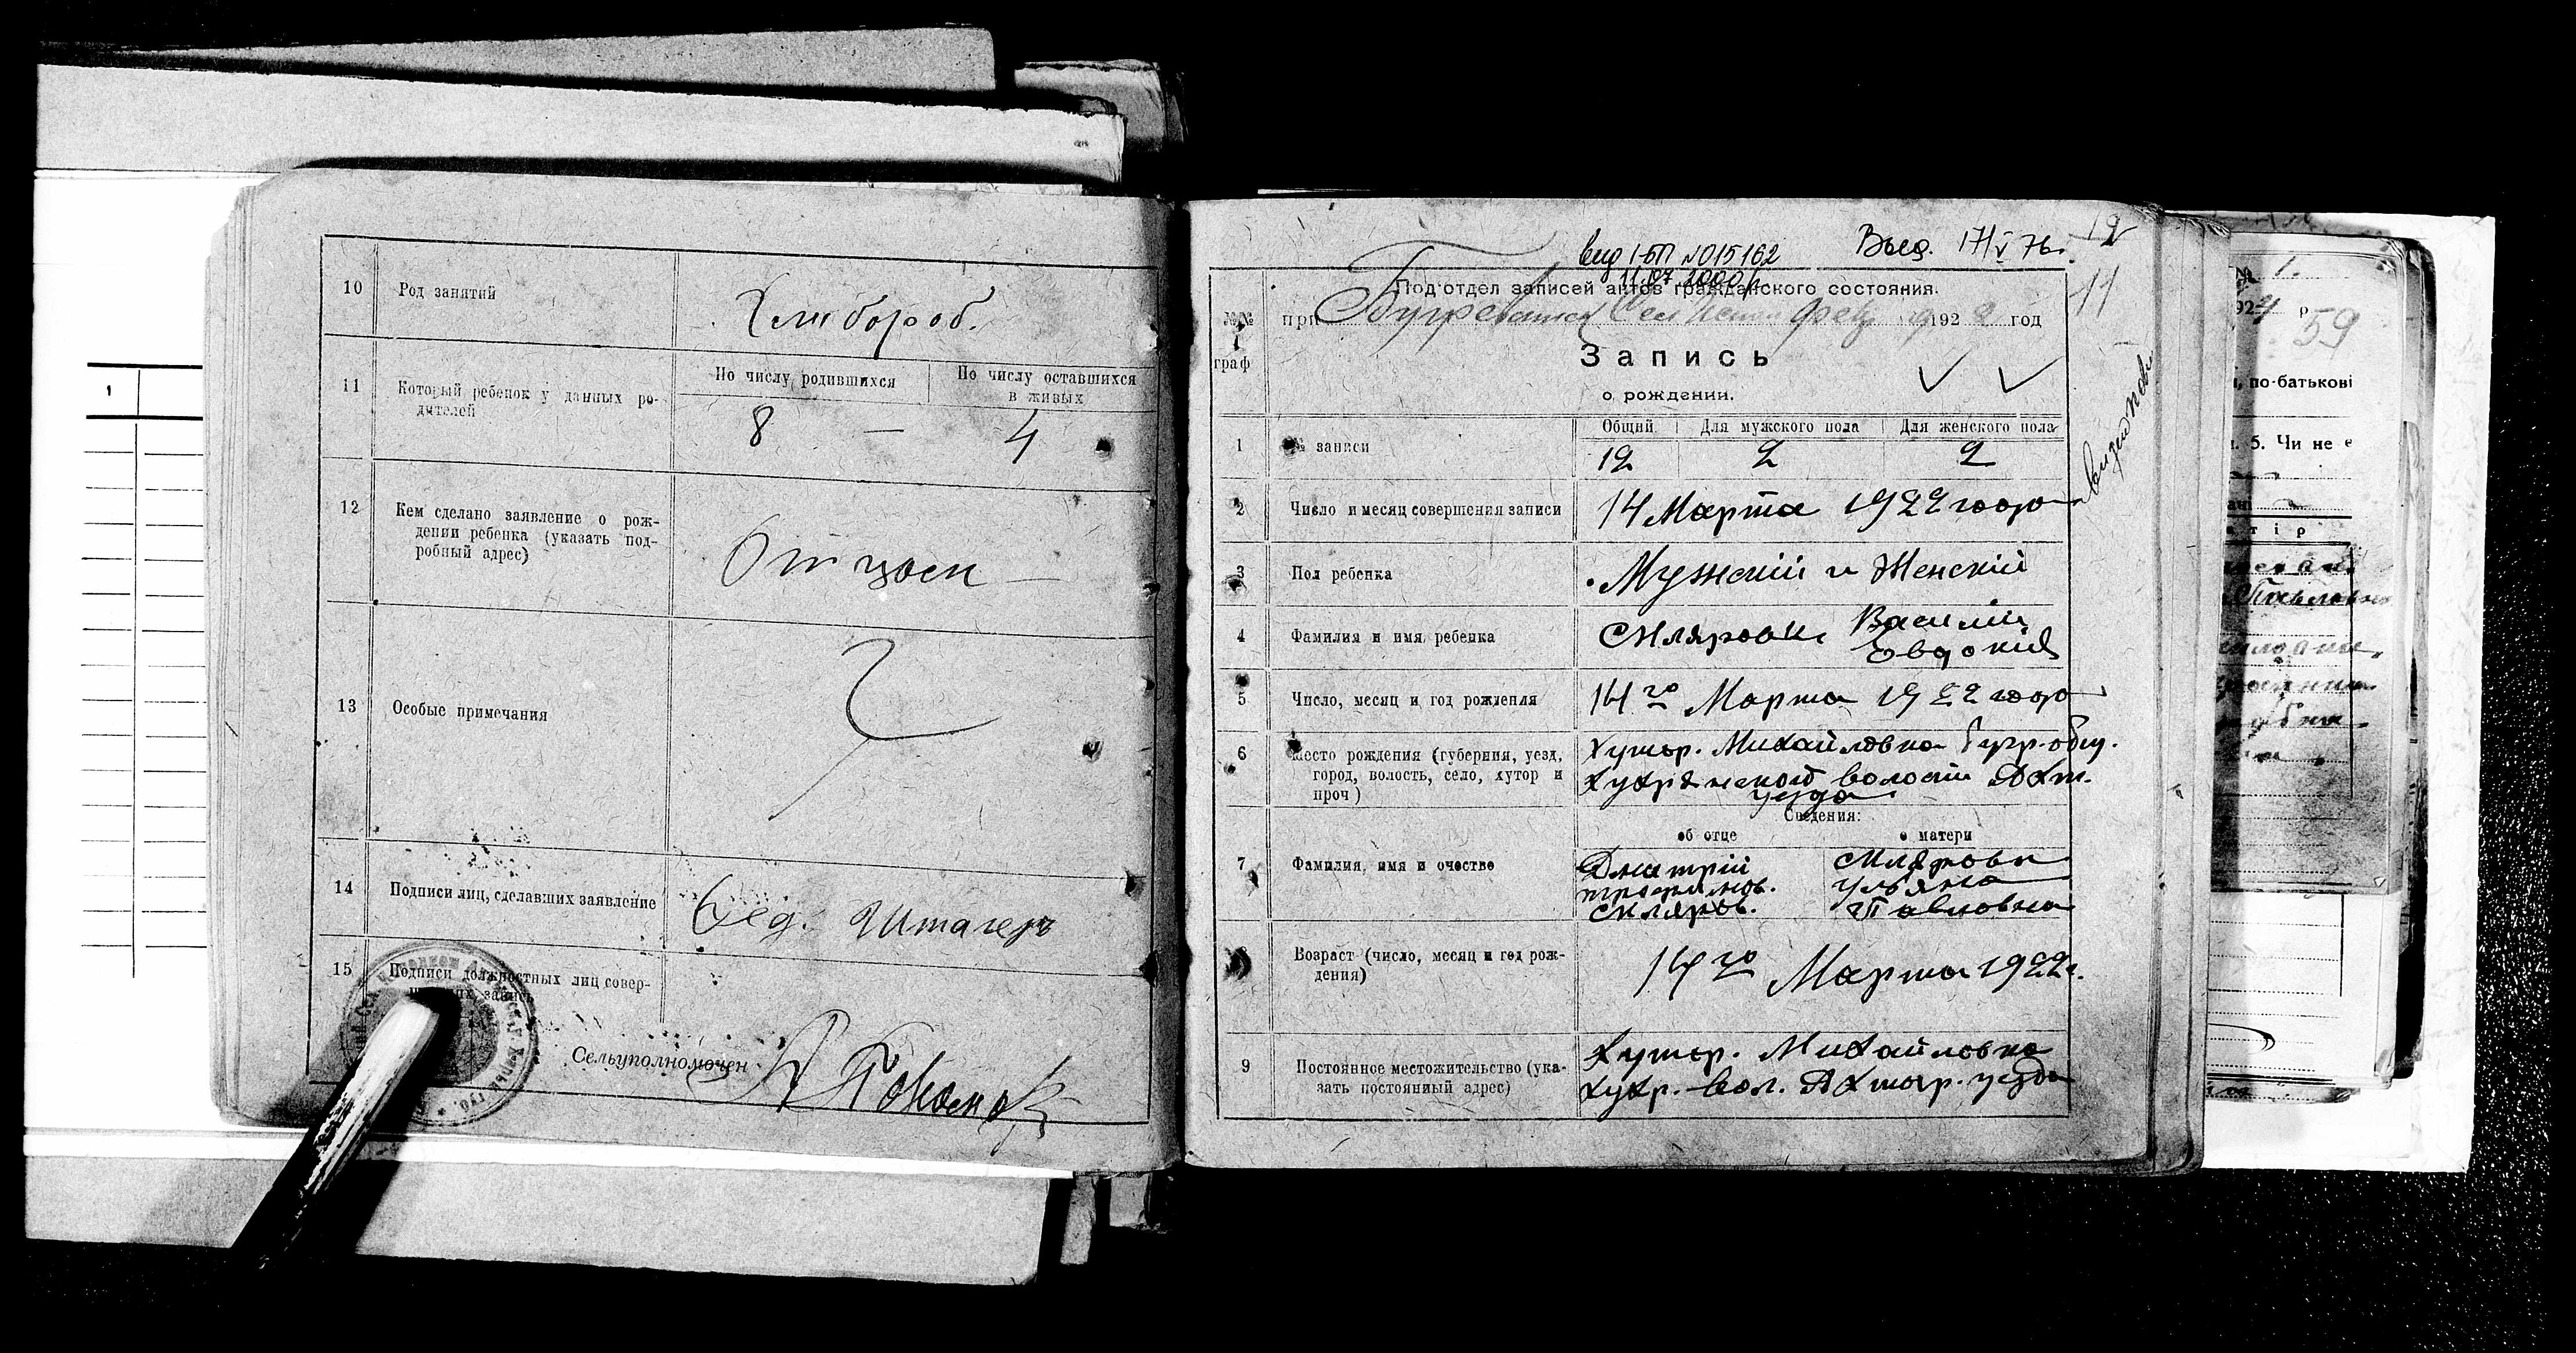 10 Род занятий Хлибороб.
11 Который ребенок у данных ро-
дителей
По числу родившихся По числу оставшихся
в живых
8 — 4
12 Кем сделано заявление о рож-
дении ребенка (указать под-
робный адрес)
Отцоем —
13 Особые примечания
14 Подписи лиц, сделавших заявление
15 Подписи должностных лиц совер-
запись
Сельуполномочен
вид 1-БП №015162
11.07.2000р
Выд. 17/V 76г.
12
11
Под'отдел записей актов гражданского состояния.
№№
граф
при 1922 год
Запись
о рождении.
Общий Для мужского пола Для женского пола
1 № записи 12 2 2
2 Число и месяц совершения записи 14 Марта 1922 года
3 Пол ребенка Мужский и Женский
4 Фамилия и имя ребенка Скляровы Василий
Евдокия
5 Число, месяц и год рождения 14го Марта 1922 года
6 Место рождения (губерния, уезд,
город, волость, село, хутор и
проч)
Хутор. Михайловка Бугр. общ.
Хухрянской волости Ахт.
уезда
Сведения:
об отце о матери
7 Фамилия, имя и очество
Дмитрий
трофимов.
Скляров.
Склярова
Ульяна
Павловна
8 Возраст (число, месяц и год рож-
дения)
14го Марта 1922г.
9 Постоянное местожительство (ука-
зать постоянный адрес)
Хутор. Михайловка
Хухр. вол. Ахтыр. уезда
1
№ 1.
1924 р
59
, по-батькові
5. Чи не є